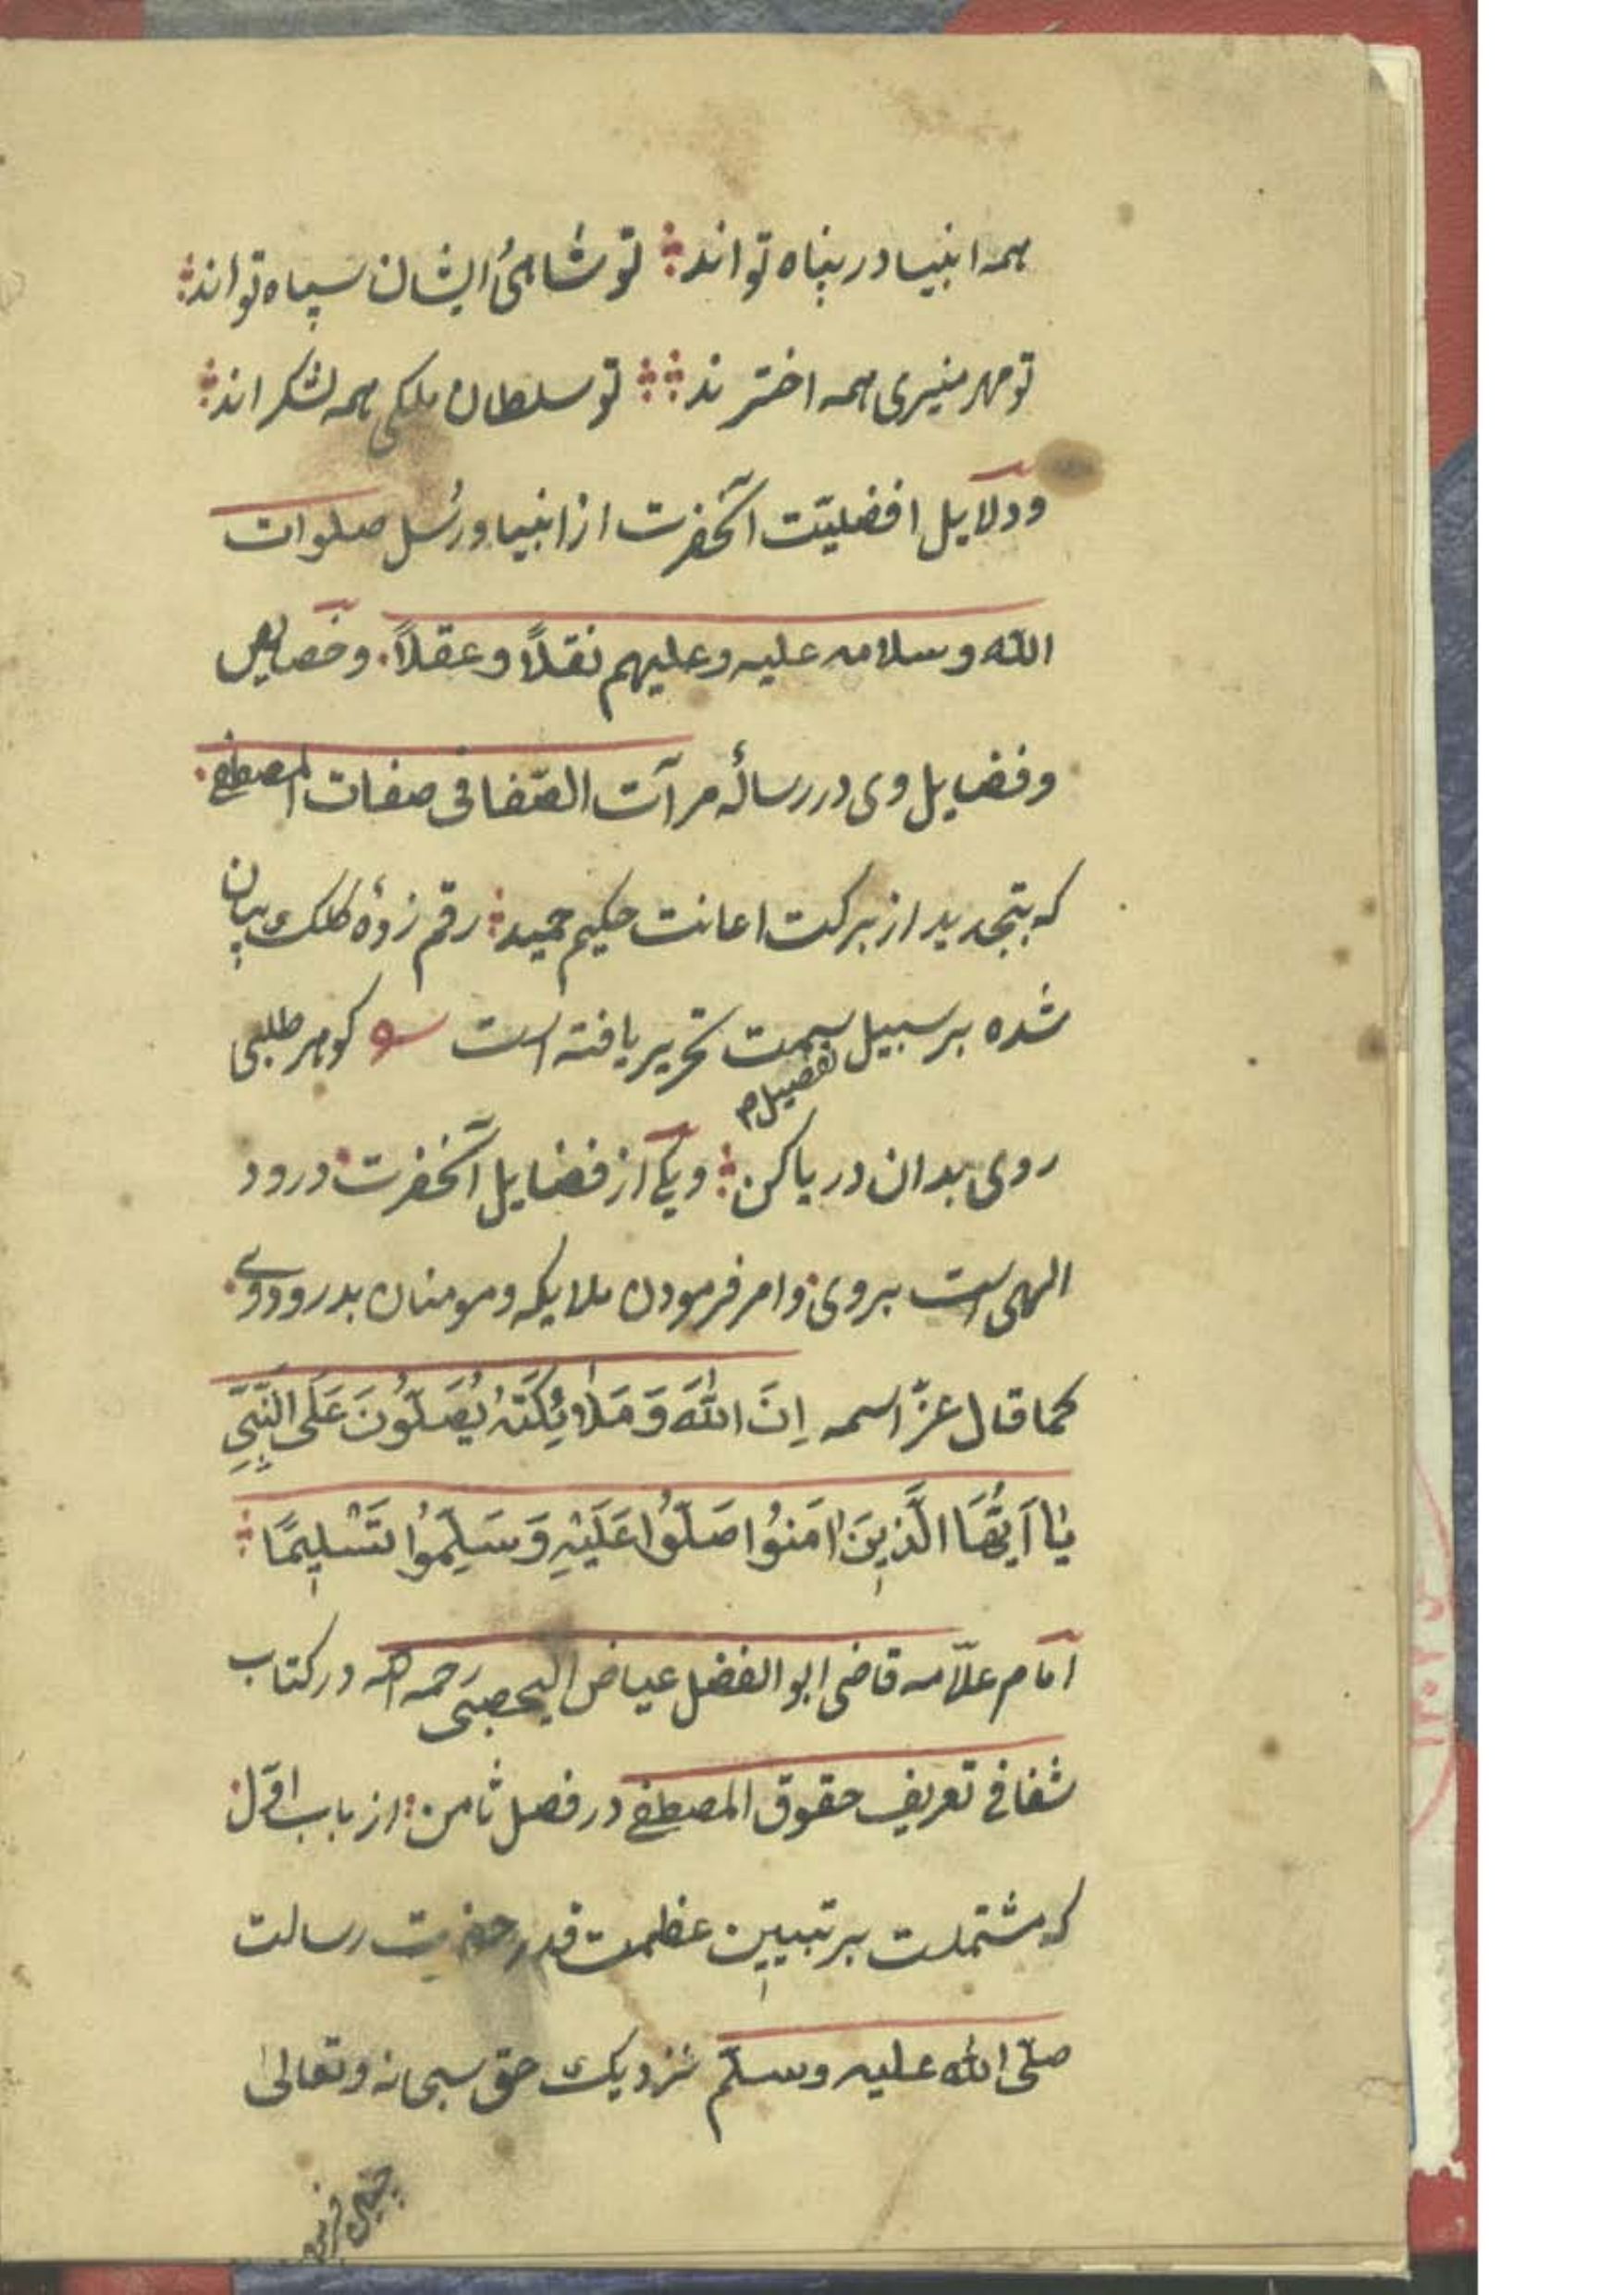 همه انبیا در پناه تو اند تو شاهیٔ ایشان سپاه تو اند
تو مهر منیری همه اخترند تو سلطان ملکی همه لشکر اند
ودلایل افضلیّت آنحضرت از انبیا ورُسل صلوات
الله وسلامه علیه وعلیهم نقلاً وعقلاً. وخصایص
وفضایل وی در رسالهٔ مرآت الصّفا فی صفات المصطفی
که بتجدید از برکت اعانت حکیم حمید رقم زدهٔ کلک بیان
شده بر سبیل سمت تحریر یافته است گوهر طلبی
تفصیل م
روی بدان دریا کن ویکی از فضایل آنحضرت درود
الهی است بروی وامر فرمودن ملایکه ومومنان بدرود وی
کما قال عزّ اسمه اِنَ اللهَ وَ مَلٰائِکَتَهُ یُصَلّوُنَ عَلَی النَّبِیِّ
یٰا اَیُّهَا الَّذِینَ اٰمَنوُا صَلّوُا عَلَیْهِ وَ سَلِّموُا تَسْلیمًا
امام علاّمه قاضی ابو الفضل عیاض الیحصبی رحمه الله در کتاب
شفا فی تعریف حقوق المصطفی در فصل ثامن از باب اوّل
که مشتملست بر تبیین عظمت قدر حضرت رسالت
صلّی الله علیه وسلّم نزدیک حق سبحانه وتعالیٰ
چنین